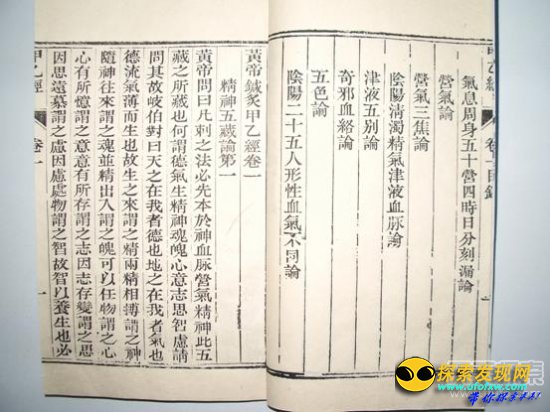 卷一目錄
氣息周身五十營四時日分刻漏論
營氣論
營氣三焦論
陰陽清濁精氣津液血脉論
津液五別論
奇邪血絡論
五色論
陰陽二十五人形性血氣不同論
黃帝鍼灸甲乙經卷一
精神五藏論第一
黃帝問曰凡刺之法必先本於神血脉營氣精神此五
藏之所藏也何謂德氣生精神魂魄心意志思智慮請
問其故岐伯對曰天之在我者德也地之在我者氣也
德流氣薄而生也故生之來謂之精兩精相薄謂之神
隨神往來謂之魂並精出入謂之魄可以任物謂之心
心有所憶謂之意意有所存謂之志因志存變謂之思
因思遠慕謂之慮因慮處物謂之智故智以養生也必
甲乙經 卷一 一
探索发现网
www.oforxw.com
带你探索未知